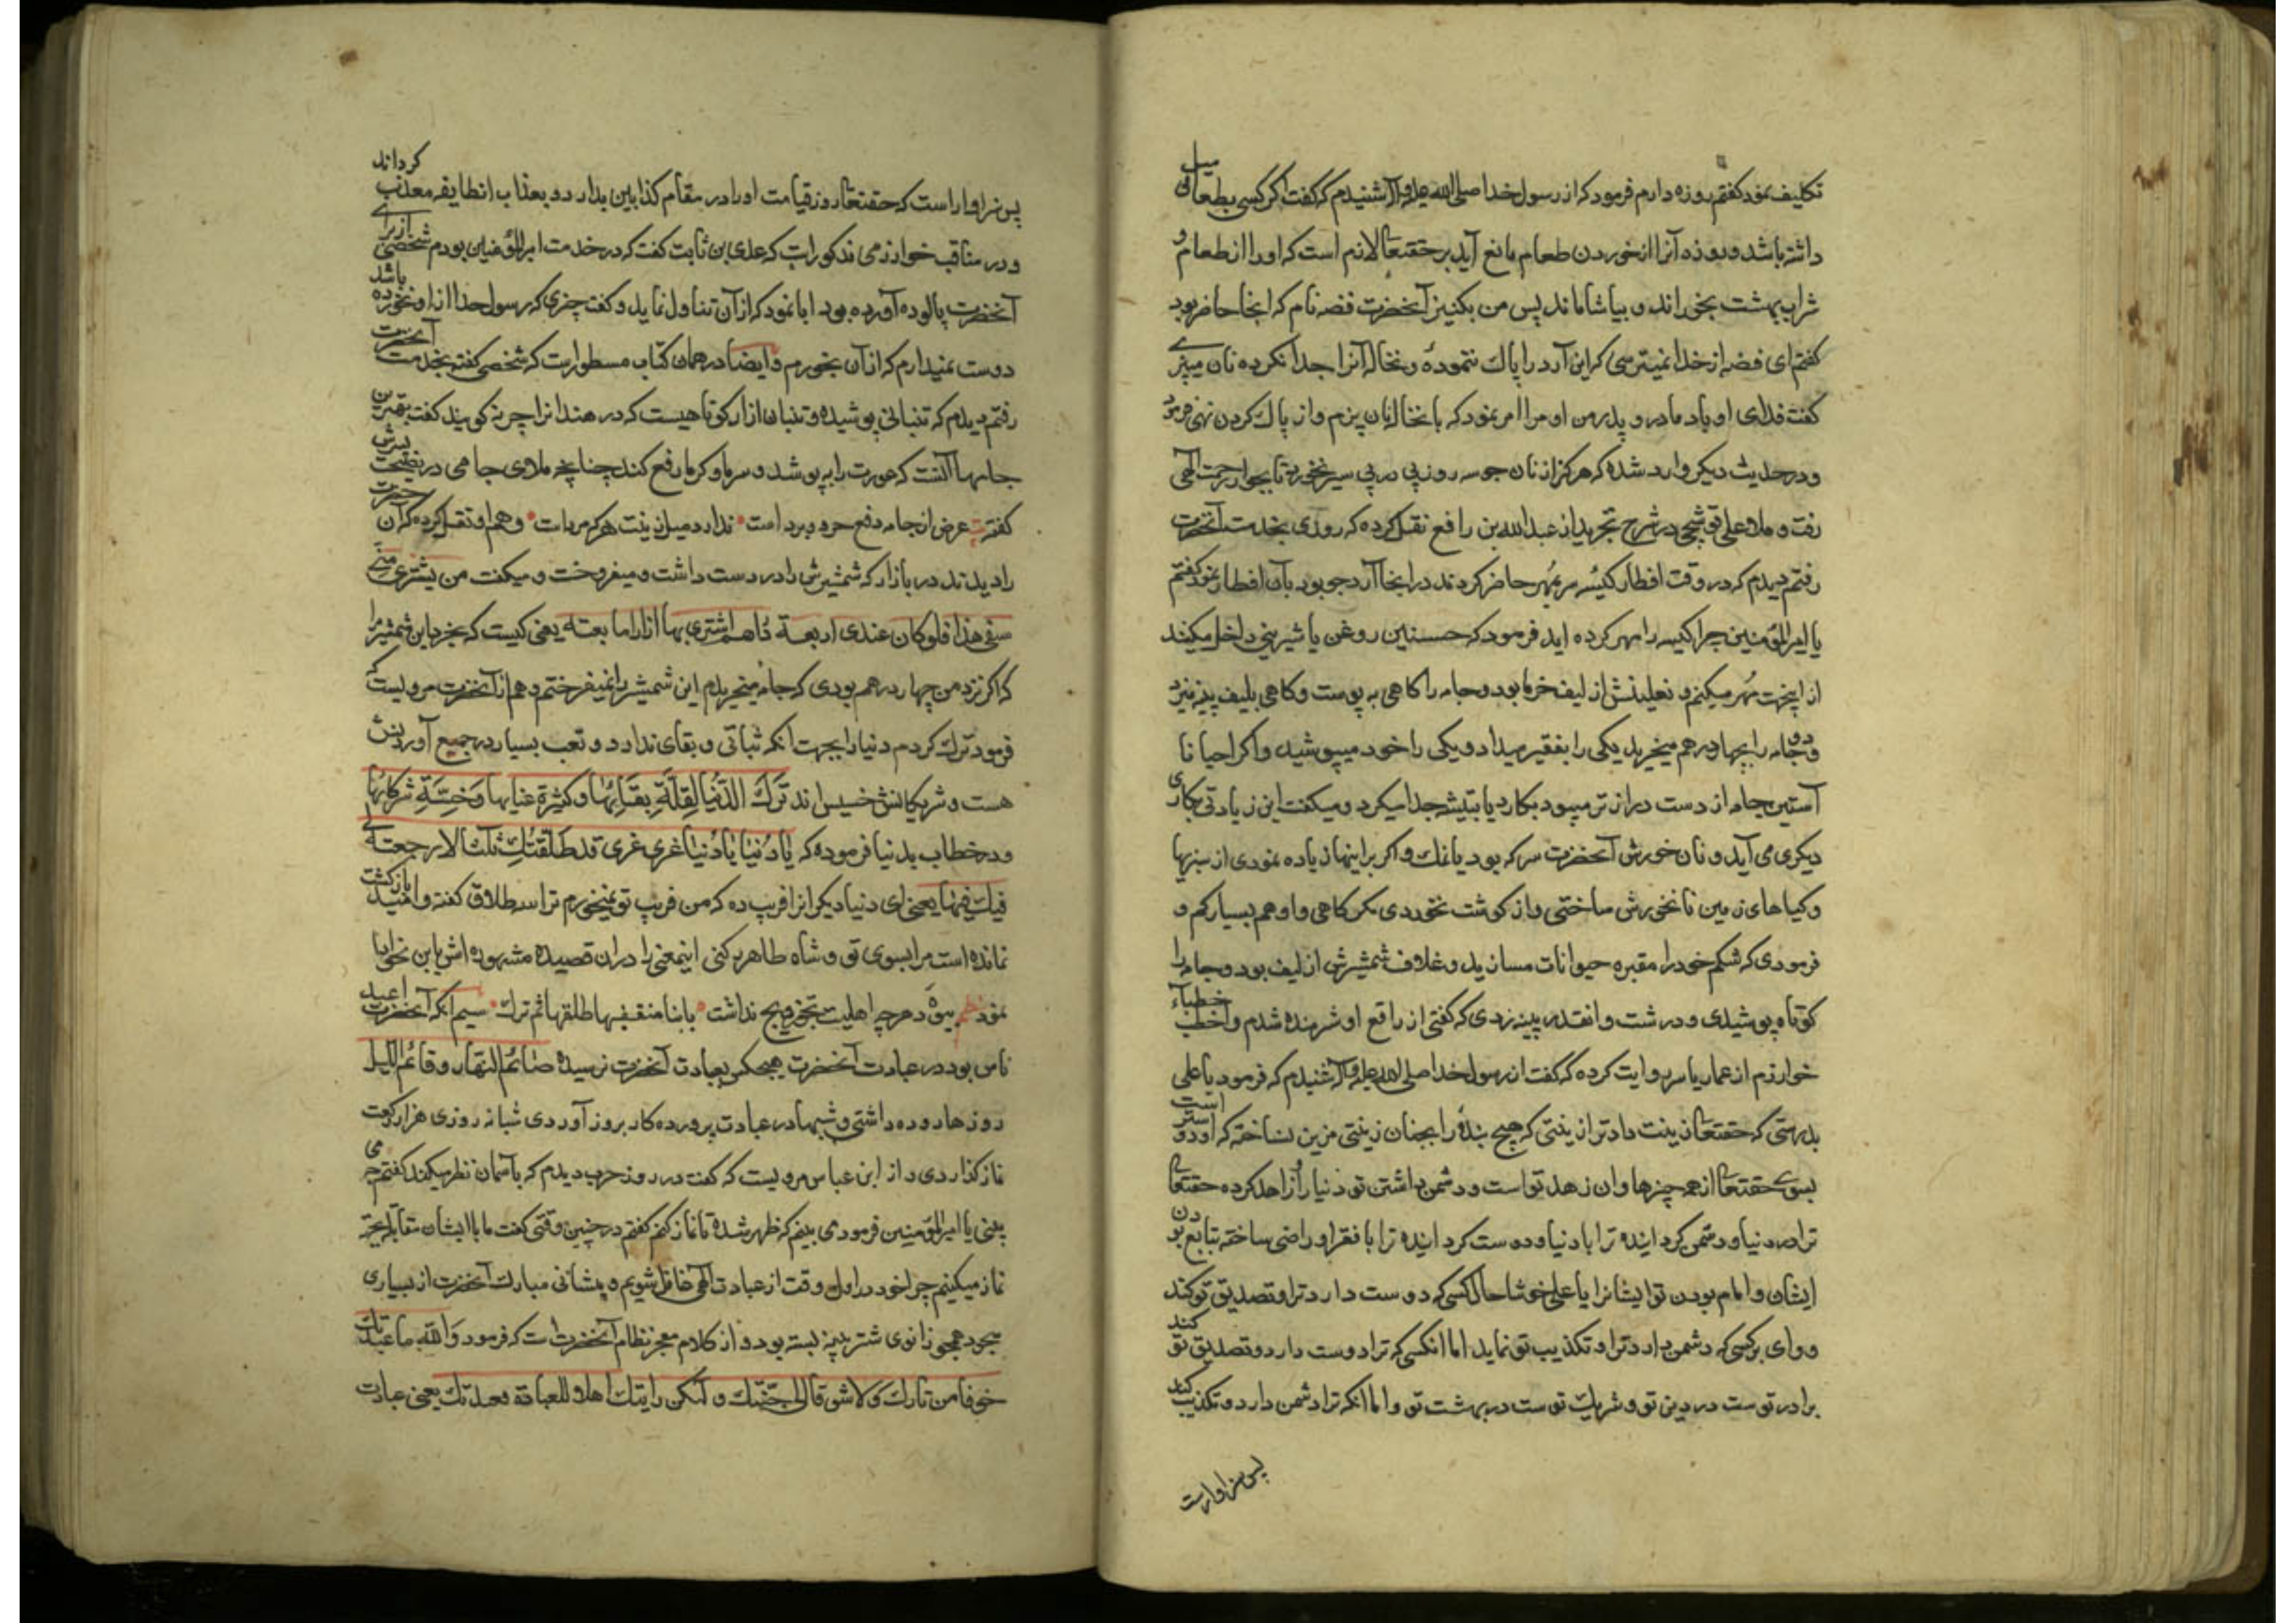 تکلیف نمود کفتم روزه دارم فرمود که از رسول خدا صلی الله علیه وآله شنیدم که کفت اکر کسی بطعامی میل
داشته باشد و روزه آنرا از خوردن طعام مانع آید بر حقتعالی لازم است که اورا از طعام و
شراب بهشت بخوراند و بیاشاماند پس من بکنیز آنحضرت فضه نام که اینجا حاضر بود
کفتم ای فضه از خدا نمیترسی که این آرد را پاک ننموده و نخاله آنرا جدا نکرده نان میپزی
کفت فدای او باد مادر و پدر من او مرا امر نمود که با نخاله نان پزم و از پاک کردن نهی فرمود
و در حدیث دیکر وارد شده که هرکز از نان جو سه روز پی در پی سیر نخورد تا بجوار رحمت الهی
رفت و ملا علی قوشچی در شرح تجرید از عبدالله بن رافع نقل کرده که روزی بخدمت آنحضرت
رفتم دیدم که در وقت افطار کیسه سر بمهر حاضر کردند در انجا آرد جو بود بآن افطار نمود کفتم
یا امیرالمؤمنین چرا کیسه را مهر کرده اید فرمود که حسنین روغن یا شیرینی داخل میکنند
از اینجهت مهر میکنم و نعلینش از لیف خرما بود و جامه را کاهی به پوست و کاهی بلیف پینه میزد
و دو جامه را بچهار درهم میخرید یکی را بفقیر میداد و یکی را خود میپوشید و اکر احیانا
آستین جامه از دست درازتر میبود بکارد یا بتیشه جدا میکرد و میکفت این زیادتی بکاری
دیکری می آید و نان خورش آنحضرت سرکه بود یا نمک و اکر بر اینها زیاده نمودی از سبزیها
و کیاهای زمین نانخورش ساختی و از کوشت نخوردی مکر کاهی و او هم بسیار کم و
فرمودی که شکم خود را مقبره حیوانات مسازید و غلاف شمشیرش از لیف بود و جامه را
کوتاه پوشیدی و درشت و انقدر پینه زدی که کفتی از راقع او شرمنده شدم و اخطب خطباء
خوارزم از عمار یاسر روایت کرده که کفت از رسول خدا صلی الله علیه وآله شنیدم که فرمود یا علی
بدرستی که حقتعالی زینت داد ترا زینتی که هیچ بندهٔ را بچنان زینتی مزین نساخته که او دوستر است
بسوی حقتعالی از همه چیزها و ان زهد تو است و دشمن داشتن تو دنیا را زاهد کرده حقتعالی
ترا در دنیا و دشمن کردانیده ترا با دنیا و دوست کردانیده ترا با فقرا و راضی ساخته بتابع بودن
ایشان و امام بودن تو ایشانرا یا علی خوشا حال کسی که دوست دارد ترا و تصدیق تو کند
و وای بر کسی که دشمن دارد ترا و تکذیب تو نماید اما انکسی که ترا دوست دارد و تصدیق تو کند
برادر توست در دین تو و شریک توست در بهشت تو و اما انکه ترا دشمن دارد و تکذیب کند
پس سزاوارست
پس سزاوار است که حقتعالی روز قیامت اورا در مقام کذابین بدارد و بعذاب انطایفه معذب کرداند
و در مناقب خوارزمی مذکور است که عدی بن ثابت کفت که در خدمت امیرالمؤمنین بودم شخصی از برای
آنحضرت پالوده آورده بود ابا نمود که از آن تناول نماید و کفت چیزی که رسول خدا از او نخورده باشد
دوست نمیدارم که از آن بخورم و ایضا در همان کتاب مسطور است که شخصی کفته بخدمت آنحضرت
رفتم دیدم که تنبانی پوشیده و تنبان ازار کوتاهیست که در هند انرا چرنه کویند کفت بهترین
جامها آنست که عورت را بپوشد و سرما و کرما رفع کند چنانچه ملای جامی در نصیحت پسرش
کفته عرض از جامه دفع حر و برد است ندارد میل زینت هرکه مرد است و هم او نقل کرده که آن حضرت
را دیدند در بازار که شمشیرش را در دست داشت و میفروخت و میکفت من یشتری منی
سیفی هذا فلو کان عندی اربعة دراهم اشتری بها ازارا ما بعته یعنی کیست که بخرد این شمشیر مرا
که اکر نزد من چهار درهم بودی که جامه میخریدم این شمشیر را نمیفروختم و هم از آنحضرت مرویست که
فرمود ترک کردم دنیا را بجهت انکه ثباتی و بقای ندارد و تعب بسیار در جمیع آوردنش
هست و شریکانش خسیس اند تَرَکتُ الدُّنیا لِقِلَّةِ بَقَائِهَا وَ کثرة عنایها وَ خِسَّةِ شرکائها
و در خطاب بدنیا فرموده که یا دُنیا یا دُنیا غری غری قد طلقتک ثلثا لا رجعة لی
فیک فیها یعنی ای دنیا دیکرانرا فریب ده که من فریب تو نمیخورم ترا سه طلاق کفته و امید بازکشت
نمانده است مرا بسوی تو و شاه طاهر دکنی اینمعنی را در ان قصیده مشهوره اش باین نحو ایما
نموده دهر چه اهلیت تجویز نداشت ثم ترک سیم انکه آنحضرت اعبد
ناس بود در عبادت آنحضرت هیچکس بعبادت آنحضرت نرسیده صائم النهار و قائم اللیل
روزها روزه داشتی و شبها در عبادت پرورده کار بروز آوردی شبانه روزی هزار رکعت
نماز کذاردی و از ابن عباس مرویست که کفت در روز حرب دیدم که بآسمان نظر میکند کفتم چه می
بینی یا امیرالمؤمنین فرمود می بینم که ظهر شده تا نماز کنم کفتم در چنین وقتی کفت ما با ایشان مقابله بجهة
نماز میکنیم چرا خود در اول وقت از عبادت الهی غافل شویم و پیشانی مبارک آنحضرت از بسیاری
سجود همچو زانوی شتر پینه بسته بود و از کلام معجز نظام آنحضرت است که فرمود وَاللهِ ما عبدتک
خوفا من نارک و لا شوقا الی جنتک و لکن رایتک اهلا للعبادة فعبدتک یعنی عبادت